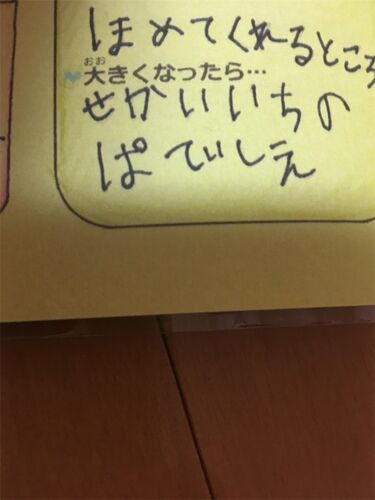 ほめてくれるところ
おお
大きくなったら…
せかいいちの
ぱてぃしえ